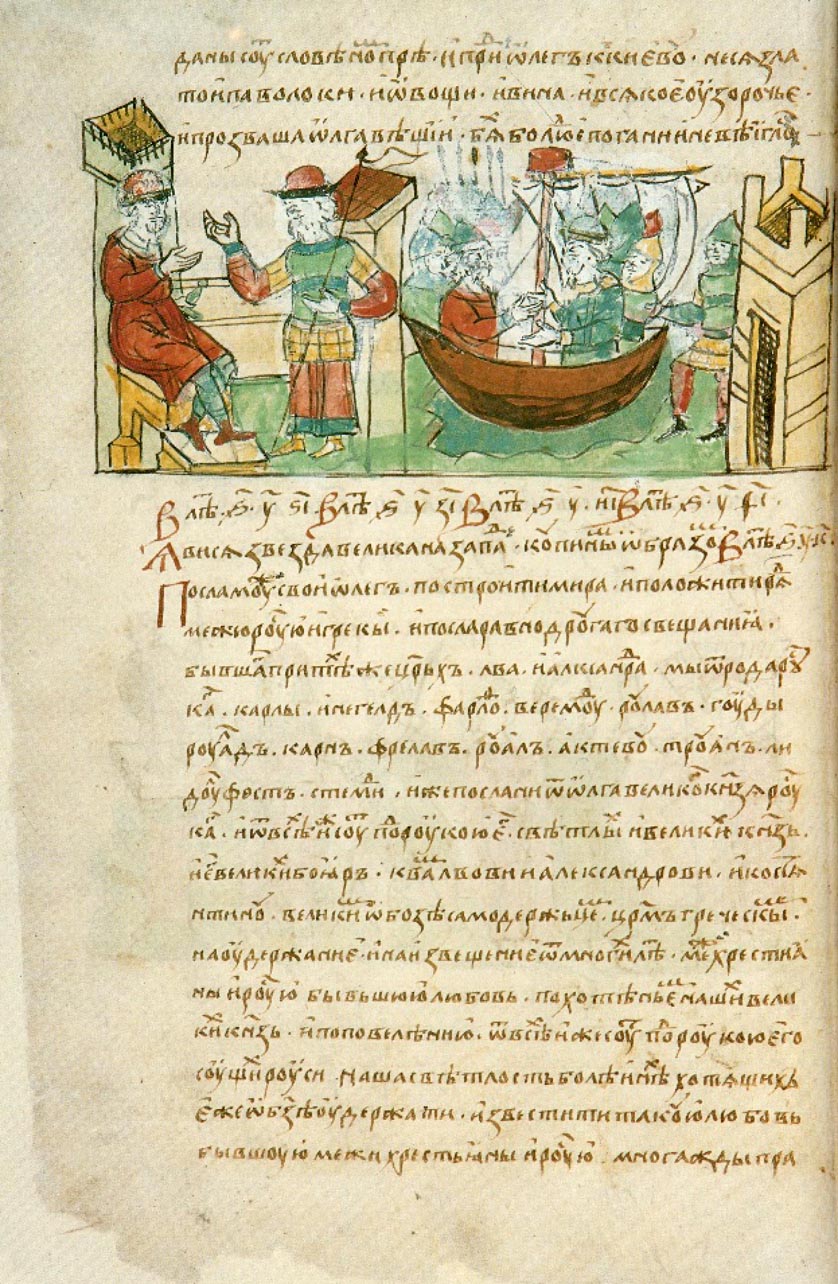 даны соуⷮ словѣноⷨ прѣ. и приⷣ ѡлегъ к киевоⷹ. неся зла
то и паволоки. и ѡвощи. и вина. и всякое оузорочье.
и прозваша ѡлга вѣщїи. бяⷯ бо люⷣе погани и невѣиглоⷭ
в лѣⷮ. ҂ѕ҃. у҃. ѕ҃і в лѣⷮ. ҂ѕ҃ у҃ з҃і. в лѣⷮ. ҂ѕ҃. у҃. и҃і в лѣⷮ. ҂ѕ҃. у҃. ѳ҃і.
явися звезда велика на запаⷣ. копииныⷨ ѡбразоⷨ. в лѣⷮ. ҂ѕ҃. у҃. к҃.
посла моуⷤ свои ѡлегъ. построити мира. и положити ряⷣ
межю роуⷭю и греки. и посла равно дроугаго свещания.
бывшаⷢ при тѣⷯже цр҃ьхъ. лва. и алксанⷣра. мы ѿ рода роуⷭ
каⷢ. карлы. инегелдъ. фарлоⷴ. веремоуⷣ. роулавъ. гоуды
роуалдъ. карнъ. фрелавъ. роуалъ. актевоу. троуанъ. ли
доуⷧ фостъ. стемиⷣ. иже послани ѿ ѡлга великоⷢ кн҃зя роуⷭ
каⷢ. и ѿ всѣⷯ иже соуⷮ поⷣ роукою еⷢ. свѣтлыⷯ и великиⷯ кн҃зь.
и еⷢ великиⷯ бояръ. к ваⷨ лвови и александрови. и костя
нтиноу. великиⷨ ѡ бозѣ самодержьцеⷨ. цр҃мъ греческыⷨ.
на оудержание. и на извещение ѿ многиⷯ лѣⷮ. межⷣ хрестиа
ны и роуⷭю бывьшюю любовь. похотѣньеⷨ нашиⷯ вели
киⷯ кн҃зь. и по повелѣнию. ѿ всѣⷯ иже соуⷮ поⷣ роукою его
соущиⷯ роуси. наша свѣтлость болѣ инѣⷯ хотящихъ
еже ѡ бз҃ѣ оудержати. и известити такоую любовь
бывшоую межи хрестьяны и роуⷭю. многажды пра